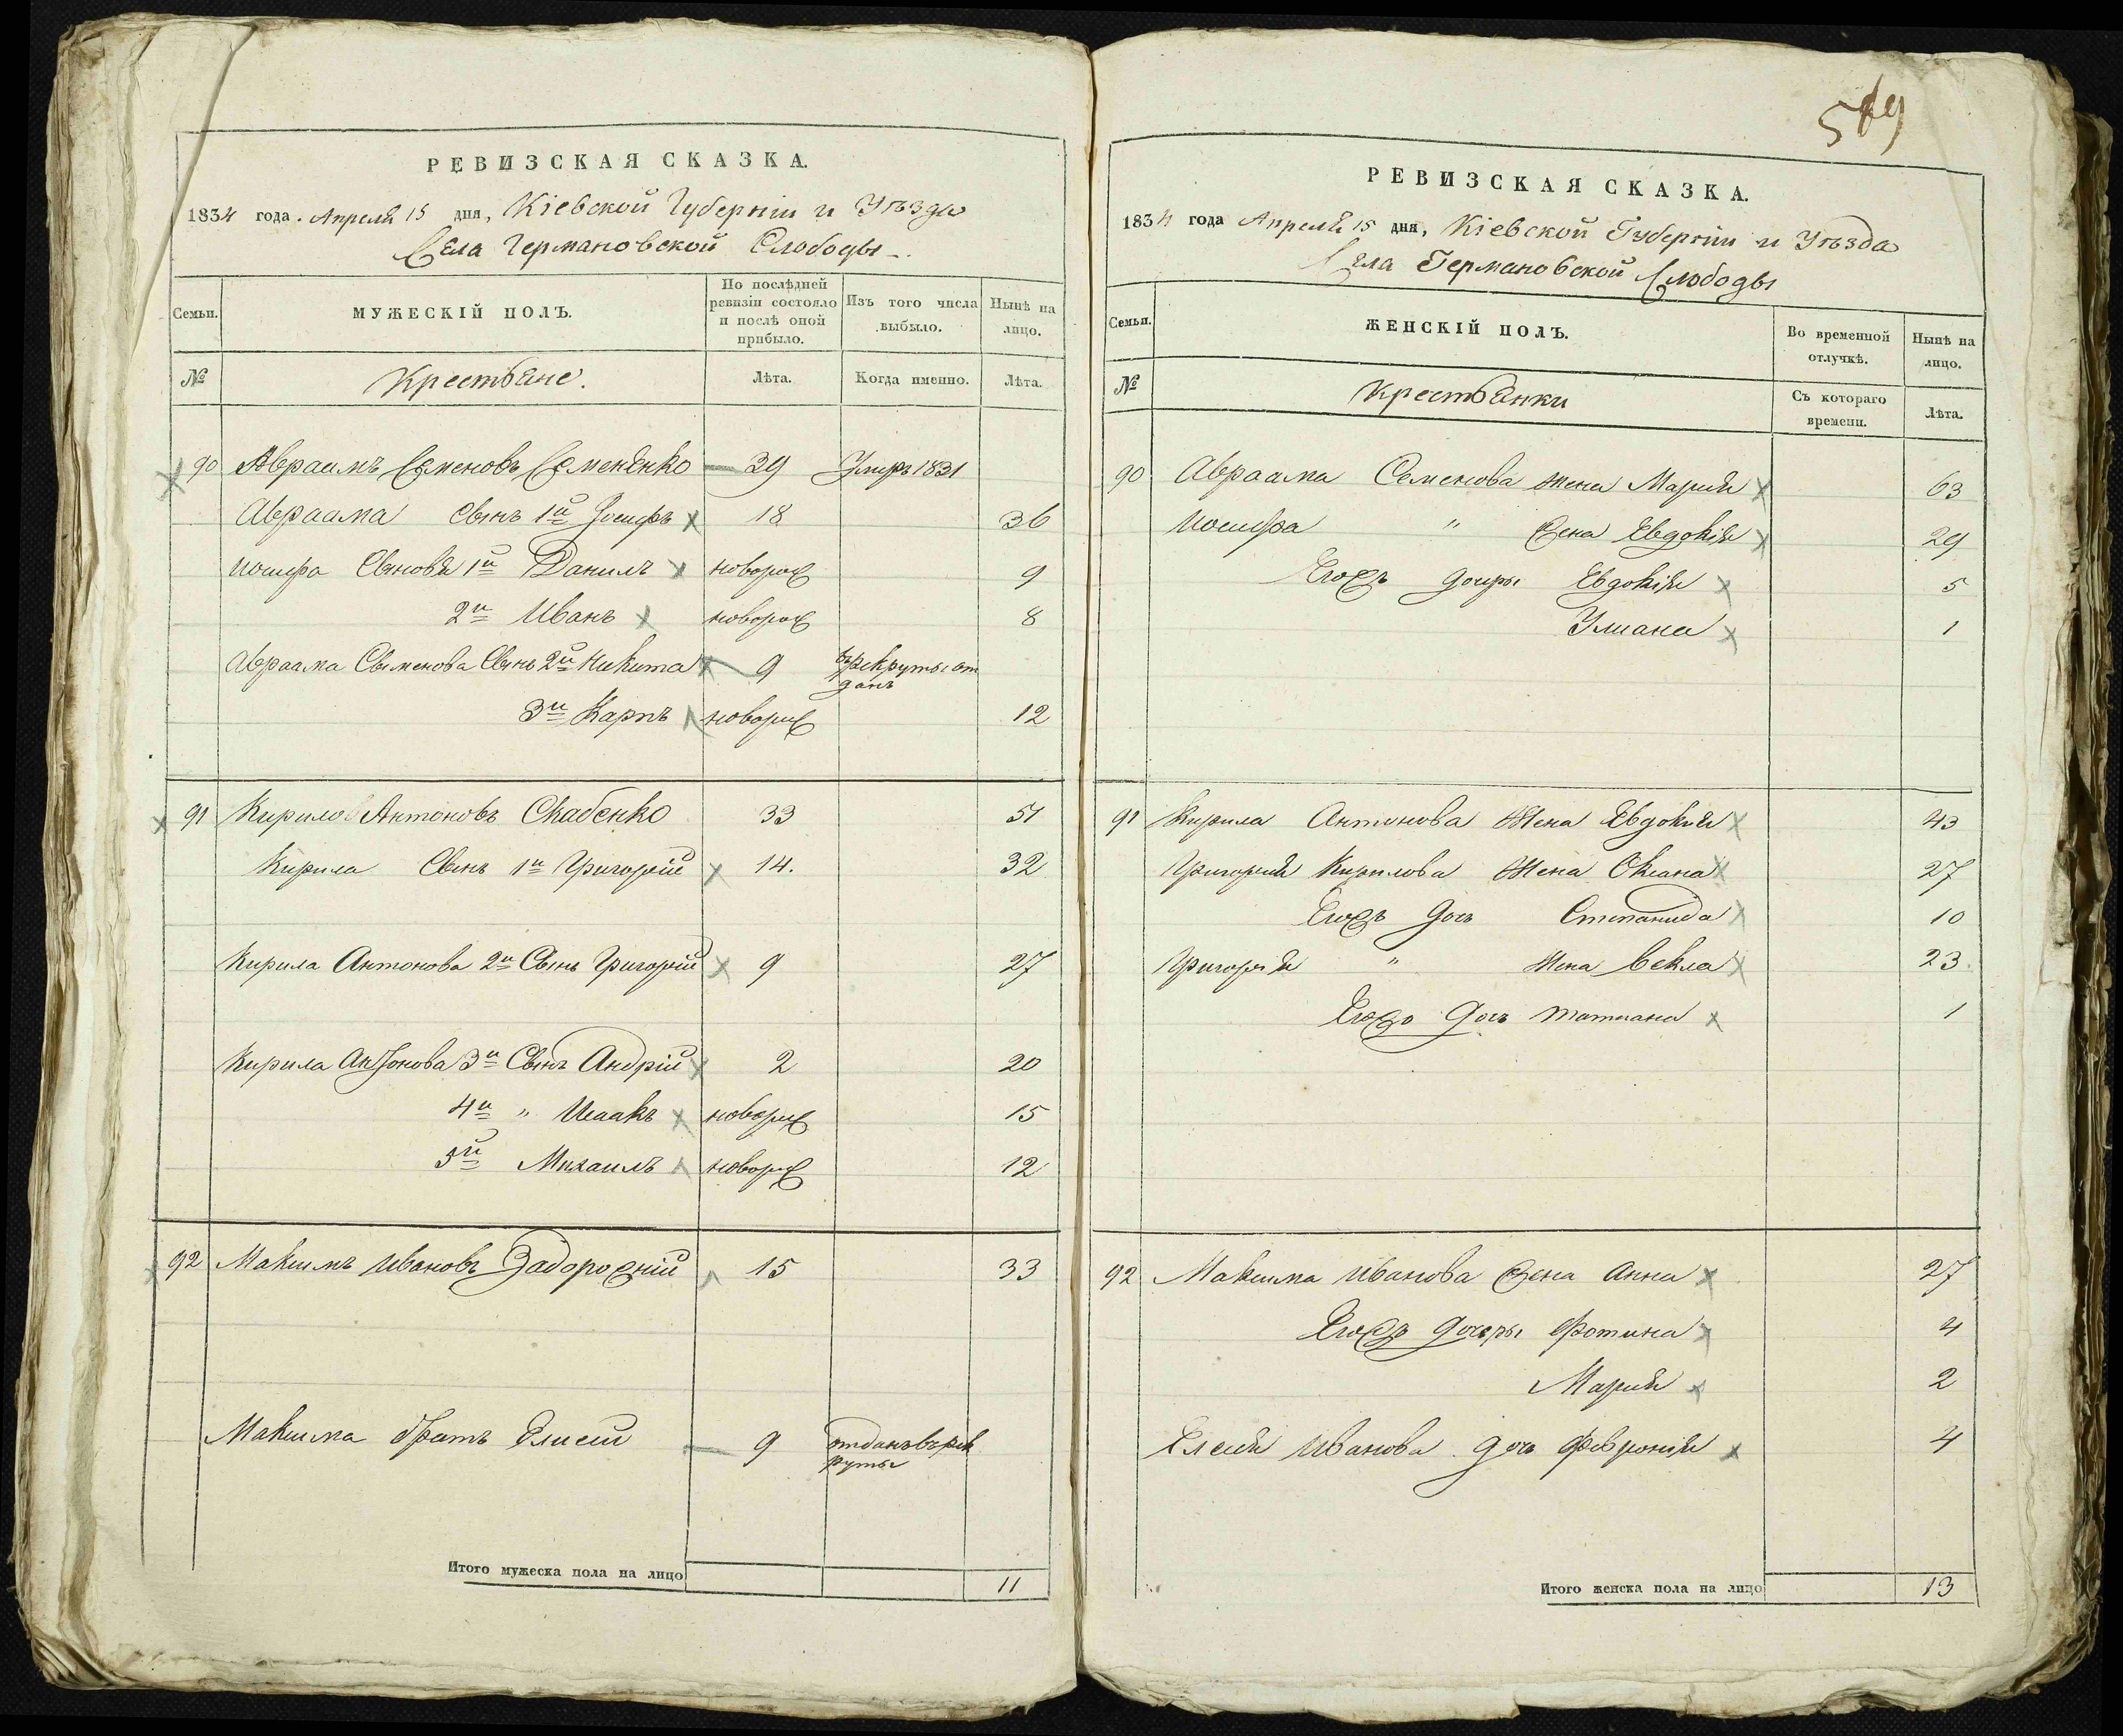 РЕВИЗСКАЯ СКАЗКА.
1834 года. Апреля 15 дня, Кіевской Губерніи и Уѣзда
Села Германовской Слободы
Семьи.
МУЖЕСКІЙ ПОЛЪ.
По послѣдней ревизіи состояло и послѣ оной прибыло.
Изъ того числа выбыло.
Нынѣ на лицо.
№
Крестьяне.
Лѣта.
Когда именно.
Лѣта.
90 Авраамъ Семеновъ Семененко 39 Умеръ 1831
Авраама Сынъ 1й Іосифъ 18 36
Иосифа Сыновя 1й Данилъ новорож 9
2й Иванъ новорож 8
Авраама Семенова Сынъ 2й Никита 9 въ рекруты от
данъ
3й Карпъ новорож 12
91 Кирило Антоновъ Скабенко 33 51
Кирила Сынъ 1й Григорій 14. 32
Кирила Антонова 2й Сынъ Григорій 9 27
Кирила Антонова 3й Сынъ Андрій 2 20
4й " Исаакъ новорож 15
5й Михаилъ новорож 12
92 Максимъ Ивановъ Задорожній 15 33
Максима братъ Елисей 9 отданъ в рек
руты
Итого мужеска пола на лицо 11
569
РЕВИЗСКАЯ СКАЗКА.
1834 года Апреля 15 дня, Кіевской Губерніи и Уѣзда
Села Германовской Слободы
Семьи.
ЖЕНСКІЙ ПОЛЪ.
Во временной отлучкѣ.
Нынѣ на лицо.
№
Крестьянки
Съ котораго времени.
Лѣта.
90 Авраама Семенова жена Мария 63
Иосифа " жена Евдокія 29
Егожъ дочры Евдокія 5
Улиана 1
91 Кирила Антонова Жена Евдокия 43
Григория Кирилова Жена Оксана 27
Егожъ дочь Степанида 10
Григория " Жена Векла 23
Егожъ дочь Татиана 1
92 Максима Иванова жена Анна 27
Егожъ дочеры Фотина 4
Мария 2
Елисея Иванова дочь Феврония 4
Итого женска пола на лицо 13